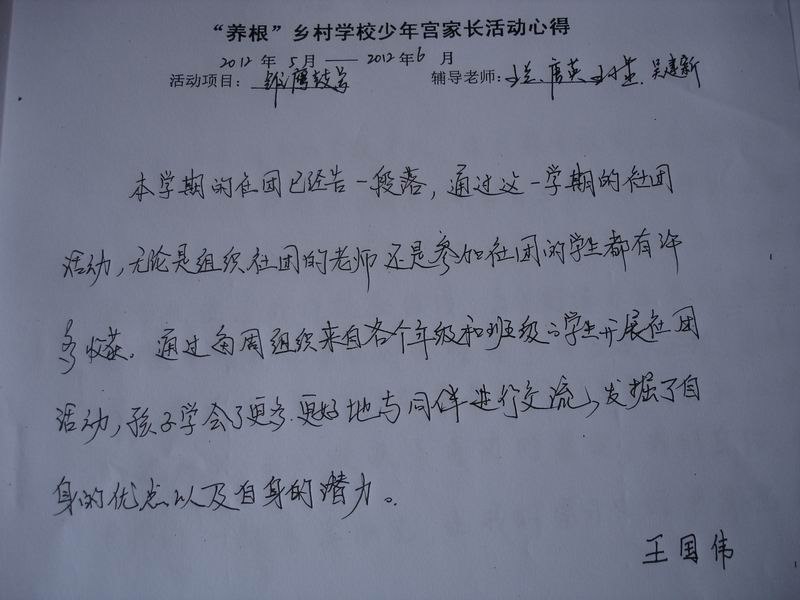 “养根”乡村学校少年宫家长活动心得
2012 年 5 月 —— 2012 年 6 月
活动项目： 辅导老师： 唐英 吴建新
本学期的社团已经告一段落，通过这一学期的社团
活动，无论是组织社团的老师还是参加社团的学生都有许
多收获。通过每周组织来自各个年级和班级的学生开展社团
活动，孩子学会了更多、更好地与同伴进行交流，发掘了自
身的优点以及自身的潜力。
王国伟